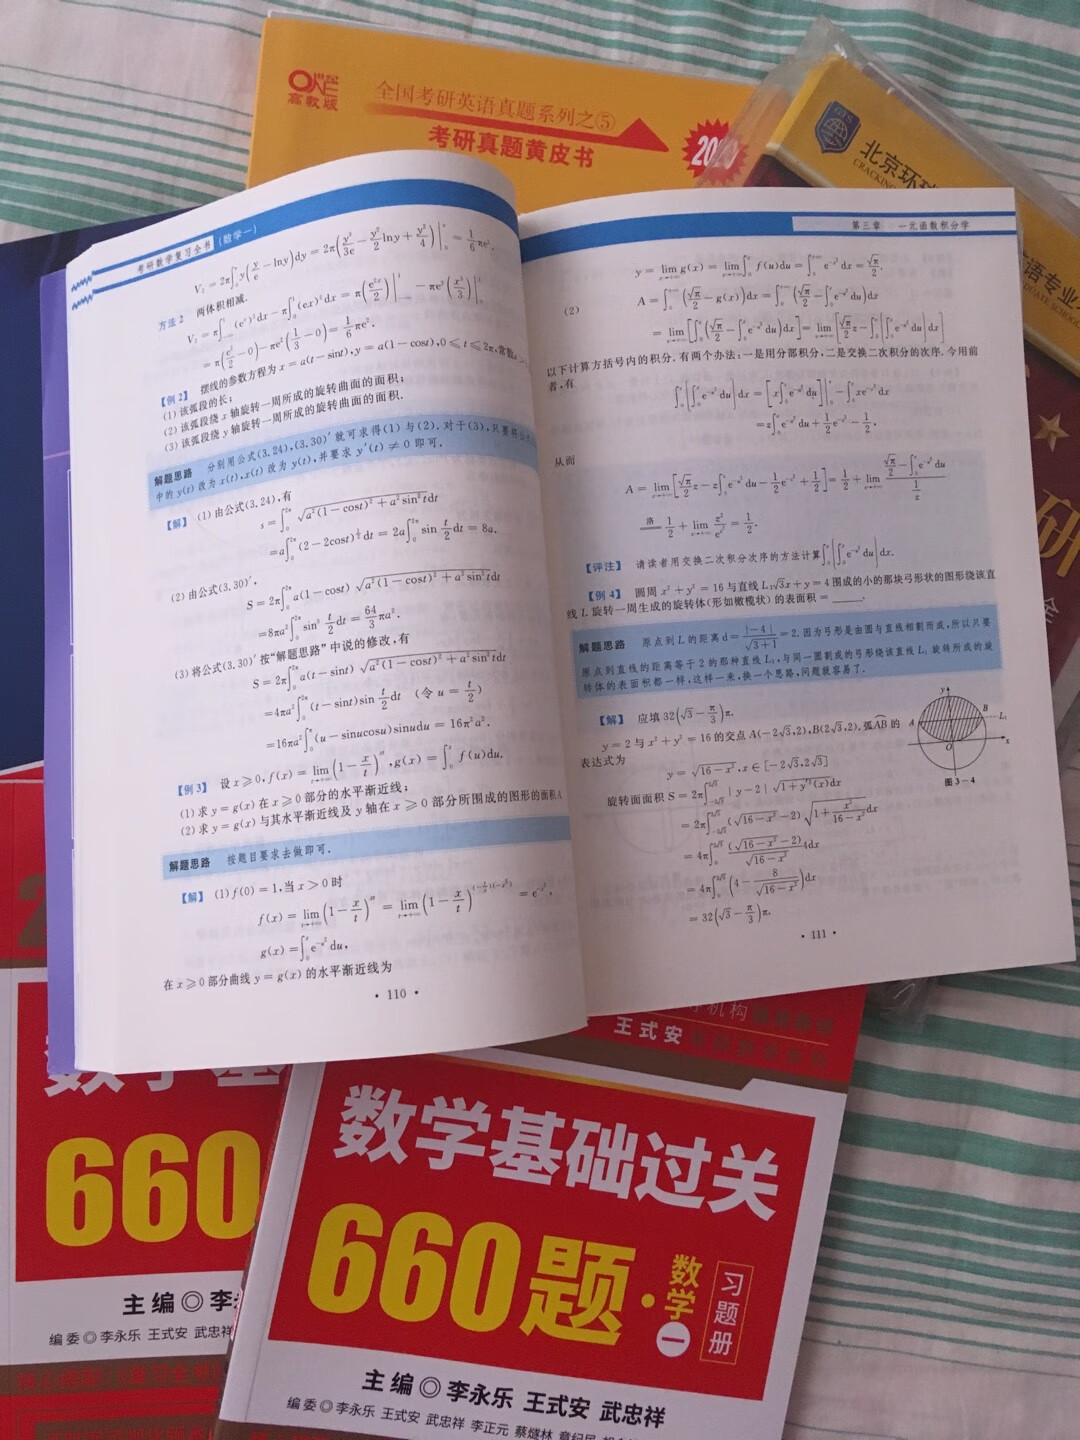 高教版
全国考研英语真题系列之⑤
考研真题黄皮书
北京环球
CRACKING
语专业
GRADUATE SCHOOL
研
考研数学复习全书(数学一)
V₂ = 2π∫₀ᵉ y(y/e − lny)dy = 2π(y³/3e − y²/2 lny + y²/4)|₀ᵉ = 1/6 πe².
方法2 两体积相减.
V₂ = π∫ (eˣ)²dx − π∫₀¹ (ex)²dx = π(e²ˣ/2)| − πe²(x³/3)|₀¹
= π(e²/2 − 0) − πe²(1/3 − 0) = 1/6 πe².
【例2】 摆线的参数方程为 x = a(t − sint), y = a(1 − cost), 0 ≤ t ≤ 2π, 常数
(1) 该弧段的长;
(2) 该弧段绕 x 轴旋转一周所成的旋转曲面的面积;
(3) 该弧段绕 y 轴旋转一周所成的旋转曲面的面积.
解题思路 分别用公式(3.24),(3.30)′就可求得(1)与(2). 对于(3),只要将公式
中的 y(t) 改为 x(t), x(t) 改为 y(t), 并要求 y′(t) ≠ 0 即可.
【解】 (1) 由公式(3.24),有
s = ∫₀²π √(a²(1 − cost)² + a²sin²t) dt
= a∫₀²π (2 − 2cost)^½ dt = 2a∫₀²π sin t/2 dt = 8a.
(2) 由公式(3.30)′,
S = 2π∫₀²π a(1 − cost) √(a²(1 − cost)² + a²sin²t) dt
= 8πa²∫₀²π sin³ t/2 dt = 64/3 πa².
(3) 将公式(3.30)′按“解题思路”中说的修改,有
S = 2π∫₀²π a(t − sint) √(a²(1 − cost)² + a²sin²t) dt
= 4πa²∫₀²π (t − sint)sin t/2 dt (令 u = t/2)
= 16πa²∫₀π (u − sinucosu)sinudu = 16π²a².
【例3】 设 x ≥ 0, f(x) = lim(1 − x/t)ˣᵗ, g(x) = ∫₀ˣ f(u)du.
(1) 求 y = g(x) 在 x ≥ 0 部分的水平渐近线;
(2) 求 y = g(x) 与其水平渐近线及 y 轴在 x ≥ 0 部分所围成的图形的面积A
解题思路 按题目要求去做即可.
【解】 (1) f(0) = 1, 当 x > 0 时
f(x) = lim(1 − x/t)ˣᵗ = lim(1 − x/t)^((−t/x)(−x²)) = e^(−x²),
g(x) = ∫₀ˣ e^(−u²) du,
在 x ≥ 0 部分曲线 y = g(x) 的水平渐近线为
· 110 ·
第三章 一元函数积分学
y = lim g(x) = lim∫₀ˣ f(u)du = ∫₀^(+∞) e^(−x²) dx = √π/2.
(2) A = ∫₀^(+∞) (√π/2 − g(x))dx = ∫₀^(+∞) (√π/2 − ∫₀ˣ e^(−u²) du)dx
= lim[∫₀ᶻ (√π/2 − ∫₀ˣ e^(−u²) du)dx] = lim[√π/2 z − ∫₀ᶻ[∫₀ˣ e^(−u²) du]dx]
以下计算方括号内的积分. 有两个办法:一是用分部积分,二是交换二次积分的次序. 今用前
者,有
∫₀ᶻ[∫₀ˣ e^(−u²) du]dx = [x∫₀ˣ e^(−u²) du]|₀ᶻ − ∫₀ᶻ xe^(−x²) dx
= z∫₀ᶻ e^(−u²) du + 1/2 e^(−z²) − 1/2,
从而
A = lim[√π/2 z − z∫₀ᶻ e^(−u²) du − 1/2 e^(−z²) + 1/2] = 1/2 + lim (√π/2 − ∫₀ᶻ e^(−u²) du)/(1/z)
洛 1/2 + lim z²/e^(z²) = 1/2.
【评注】 请读者用交换二次积分次序的方法计算∫₀ᶻ[∫₀ˣ e^(−u²) du]dx.
【例4】 圆周 x² + y² = 16 与直线 L:√3x + y = 4 围成的小的那块弓形状的图形绕该直
线 L 旋转一周生成的旋转体(形如橄榄状)的表面积 = ____.
解题思路 原点到 L 的距离 d = |−4|/√(3+1) = 2. 因为弓形是由圆与直线相割而成,所以只要
原点到直线的距离等于 2 的那种直线 L₁, 与同一圆割成的弓形绕该直线 L₁ 旋转所成的旋
转体的表面积都一样,这样一来,换一个思路,问题就容易了.
【解】 应填 32(√3 − π/3)π.
y = 2 与 x² + y² = 16 的交点 A(−2√3,2), B(2√3,2). 弧AB 的
表达式为
y = √(16 − x²), x ∈ [−2√3, 2√3]
旋转面面积 S = 2π∫ |y − 2| √(1 + y′²(x)) dx
= 2π∫ (√(16 − x²) − 2) √(1 + x²/(16 − x²)) dx
= 4π∫ (√(16 − x²) − 2)/√(16 − x²) 4dx
= 4π∫ (4 − 8/√(16 − x²))dx
= 32(√3 − π/3)π.
y
A
B
L₁
O
x
图 3-4
· 111 ·
王式安
数学基础过关
660题·数学一
习题册
主编◎李永乐 王式安 武忠祥
编委◎李永乐 王式安 武忠祥 李正元 蔡燧林
660
主编◎李
编委◎李永乐 王式安 武忠祥